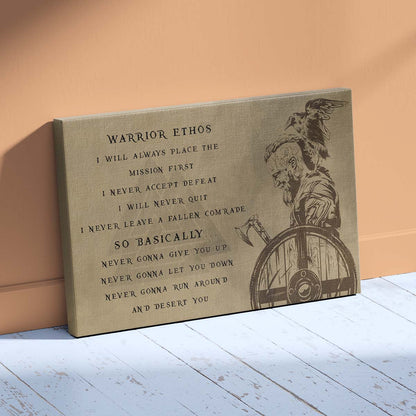 WARRIOR ETHOS
I WILL ALWAYS PLACE THE
MISSION FIRST
I NEVER ACCEPT DEFEAT
I WILL NEVER QUIT
I NEVER LEAVE A FALLEN COMRADE
SO BASICALLY
NEVER GONNA GIVE YOU UP
NEVER GONNA LET YOU DOWN
NEVER GONNA RUN AROUND
AND DESERT YOU